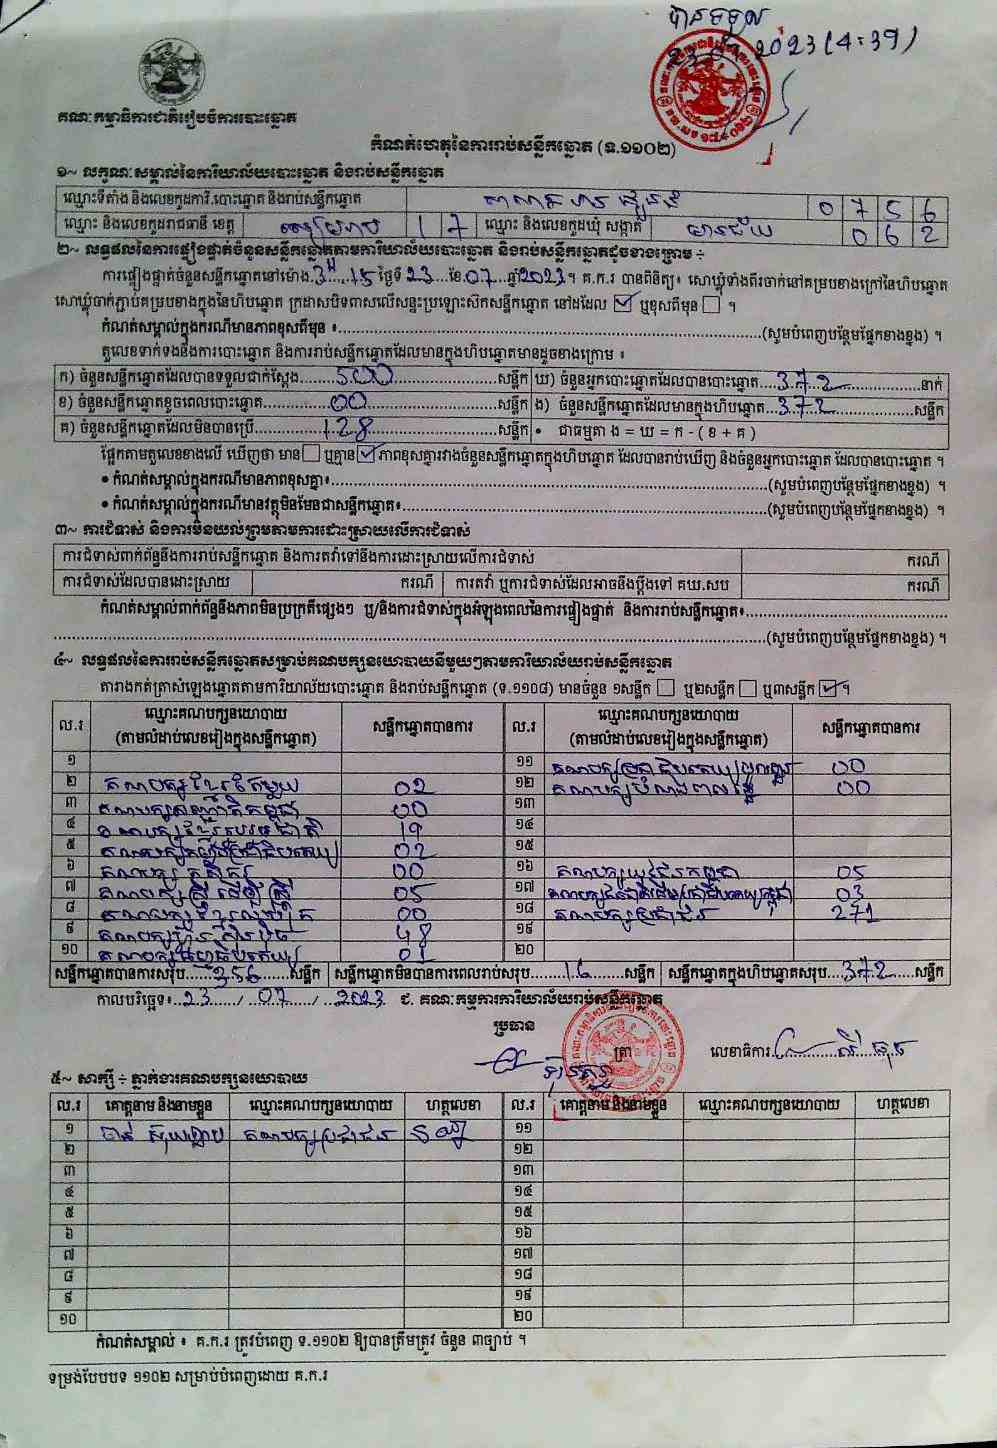 បានទទួល
23 07 2023 (4:39)
គណៈកម្មាធិការជាតិរៀបចំការបោះឆ្នោត
កំណត់ហេតុនៃការរាប់សន្លឹកឆ្នោត (ទ.១១០២)
១~ លក្ខណៈសម្គាល់នៃការិយាល័យបោះឆ្នោត និងរាប់សន្លឹកឆ្នោត
ឈ្មោះទីតាំង និងលេខកូដការិ.បោះឆ្នោត និងរាប់សន្លឹកឆ្នោត 0 7 5 6
ឈ្មោះ និងលេខកូដរាជធានី ខេត្ត សៀមរាប 1 7 ឈ្មោះ និងលេខកូដឃុំ សង្កាត់ មានជ័យ 0 6 2
២~ លទ្ធផលនៃការផ្ទៀងផ្ទាត់ចំនួនសន្លឹកឆ្នោតតាមការិយាល័យបោះឆ្នោត និងរាប់សន្លឹកឆ្នោតដូចខាងក្រោម ÷
ការផ្ទៀងផ្ទាត់ចំនួនសន្លឹកឆ្នោតនៅម៉ោង 3:15 ថ្ងៃទី 23 ខែ 07 ឆ្នាំ 2023។ គ.ក.រ បានពិនិត្យ៖ សោឃ្លុំទាំងពីរចាក់នៅគម្របខាងក្រៅនៃហិបឆ្នោត
សោឃ្លុំចាក់ភ្ជាប់គម្របខាងក្នុងនៃហិបឆ្នោត ក្រដាសបិទពាសលើសន្ទះប្រឡោះស៊កសន្លឹកឆ្នោត នៅដដែល ☑ ឬខុសពីមុន ☐ ។
កំណត់សម្គាល់ក្នុងករណីមានភាពខុសពីមុន ៖ (សូមបំពេញបន្ថែមផ្នែកខាងខ្នង) ។
តួលេខទាក់ទងនឹងការបោះឆ្នោត និងការរាប់សន្លឹកឆ្នោតដែលមានក្នុងហិបឆ្នោតមានដូចខាងក្រោម ៖
ក) ចំនួនសន្លឹកឆ្នោតដែលបានទទួលជាក់ស្តែង 500 សន្លឹក ឃ) ចំនួនអ្នកបោះឆ្នោតដែលបានបោះឆ្នោត 372 នាក់
ខ) ចំនួនសន្លឹកឆ្នោតខូចពេលបោះឆ្នោត 00 សន្លឹក ង) ចំនួនសន្លឹកឆ្នោតដែលមានក្នុងហិបឆ្នោត 372 សន្លឹក
គ) ចំនួនសន្លឹកឆ្នោតដែលមិនបានប្រើ 128 សន្លឹក • ជាធម្មតា ង = ឃ = ក - ( ខ + គ )
ផ្អែកតាមតួលេខខាងលើ ឃើញថា មាន ☐ ឬគ្មាន ☑ ភាពខុសគ្នារវាងចំនួនសន្លឹកឆ្នោតក្នុងហិបឆ្នោត ដែលបានរាប់ឃើញ និងចំនួនអ្នកបោះឆ្នោត ដែលបានបោះឆ្នោត ។
• កំណត់សម្គាល់ក្នុងករណីមានភាពខុសគ្នា៖ (សូមបំពេញបន្ថែមផ្នែកខាងខ្នង) ។
• កំណត់សម្គាល់ក្នុងករណីមានវត្ថុមិនមែនជាសន្លឹកឆ្នោត៖ (សូមបំពេញបន្ថែមផ្នែកខាងខ្នង) ។
៣~ ការជំទាស់ និងការមិនយល់ព្រមតាមការដោះស្រាយលើការជំទាស់
ការជំទាស់ពាក់ព័ន្ធនឹងការរាប់សន្លឹកឆ្នោត និងការតវ៉ាទៅនឹងការដោះស្រាយលើការជំទាស់ ករណី
ការជំទាស់ដែលបានដោះស្រាយ ករណី ការតវ៉ា ឬការជំទាស់ដែលអាចនឹងប្តឹងទៅ គឃ.សប ករណី
កំណត់សម្គាល់ពាក់ព័ន្ធនឹងភាពមិនប្រក្រតីផ្សេងៗ ឬ/និងការជំទាស់ក្នុងអំឡុងពេលនៃការផ្ទៀងផ្ទាត់ និងការរាប់សន្លឹកឆ្នោត៖
(សូមបំពេញបន្ថែមផ្នែកខាងខ្នង) ។
៤~ លទ្ធផលនៃការរាប់សន្លឹកឆ្នោតសម្រាប់គណបក្សនយោបាយនីមួយៗតាមការិយាល័យរាប់សន្លឹកឆ្នោត
តារាងកត់ត្រាសំឡេងឆ្នោតតាមការិយាល័យបោះឆ្នោត និងរាប់សន្លឹកឆ្នោត (ទ.១១០៨) មានចំនួន ១សន្លឹក ☐ ឬ២សន្លឹក ☐ ឬ៣សន្លឹក ☑ ។
ល.រ ឈ្មោះគណបក្សនយោបាយ (តាមលំដាប់លេខរៀងក្នុងសន្លឹកឆ្នោត) សន្លឹកឆ្នោតបានការ ល.រ ឈ្មោះគណបក្សនយោបាយ (តាមលំដាប់លេខរៀងក្នុងសន្លឹកឆ្នោត) សន្លឹកឆ្នោតបានការ
១ ១១ 00
២ គណបក្សខ្មែរតែមួយ 02 ១២ 00
៣ គណបក្សសញ្ជាតិកម្ពុជា 00 ១៣
៤ 19 ១៤
៥ 02 ១៥
៦ គណបក្សកសិករ 00 ១៦ គណបក្សយុវជនកម្ពុជា 05
៧ គណបក្សស្ត្រីដើម្បីស្ត្រី 05 ១៧ 03
៨ 00 ១៨ គណបក្សប្រជាជន 271
៩ គណបក្សហ៊្វុនស៊ិនប៉ិច 48 ១៩
១០ 01 ២០
សន្លឹកឆ្នោតបានការសរុប 356 សន្លឹក សន្លឹកឆ្នោតមិនបានការពេលរាប់សរុប 16 សន្លឹក សន្លឹកឆ្នោតក្នុងហិបឆ្នោតសរុប 372 សន្លឹក
កាលបរិច្ឆេទ៖ 23 / 07 / 2023 ជ. គណៈកម្មការការិយាល័យរាប់សន្លឹកឆ្នោត
ប្រធាន
ត្រា លេខាធិការ
៥~ សាក្សី ÷ ភ្នាក់ងារគណបក្សនយោបាយ
ល.រ គោត្តនាម និងនាមខ្លួន ឈ្មោះគណបក្សនយោបាយ ហត្ថលេខា ល.រ គោត្តនាម និងនាមខ្លួន ឈ្មោះគណបក្សនយោបាយ ហត្ថលេខា
១ គណបក្សប្រជាជន ១១
២ ១២
៣ ១៣
៤ ១៤
៥ ១៥
៦ ១៦
៧ ១៧
៨ ១៨
៩ ១៩
១០ ២០
កំណត់សម្គាល់ ៖ គ.ក.រ ត្រូវបំពេញ ទ.១១០២ ឱ្យបានត្រឹមត្រូវ ចំនួន ៣ច្បាប់ ។
ទម្រង់បែបបទ ១១០២ សម្រាប់បំពេញដោយ គ.ក.រ